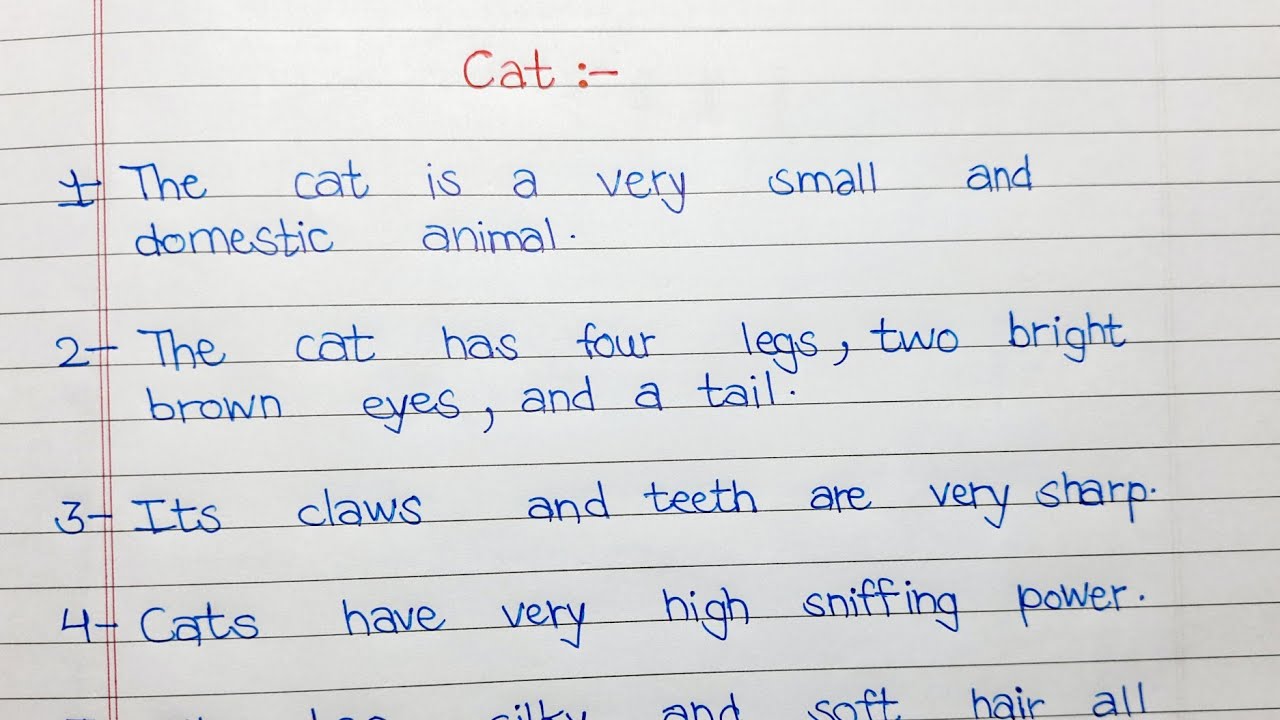 Cat :-
1- The cat is a very small and
domestic animal.
2- The cat has four legs, two bright
brown eyes, and a tail.
3- Its claws and teeth are very sharp.
4- Cats have very high sniffing power.
silky and soft hair all